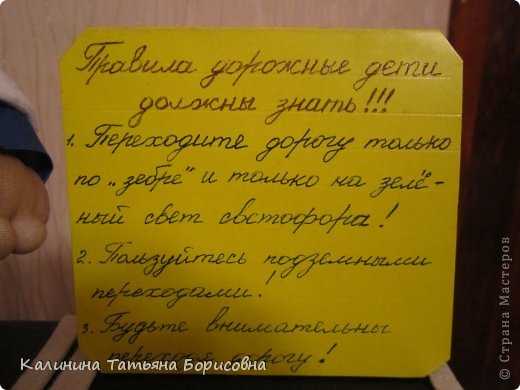 Правила дорожные дети
должны знать!!!
1. Переходите дорогу только
по „зебре" и только на зелё-
ный свет светофора!
2. Пользуйтесь подземными
переходами!
3. Будьте внимательны
переходя дорогу!
Калинина Татьяна Борисовна
© Страна Мастеров